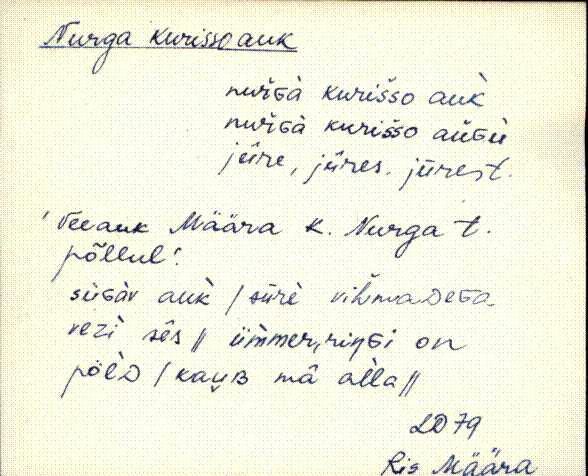 Nurga kurisso auk
nuřGà kurišso auk̀
nuřGà kurišso aüGù
jǖre, jǖres. jǖrest.
'Veeauk Määra k. Nurga t.
põllul'.
süGàv auk̀ / sūrè vihmaDèGa
vezì sēs // ümmer,riŋGi on
põlD / kauB mā alla //
LD 79
Ris Määra